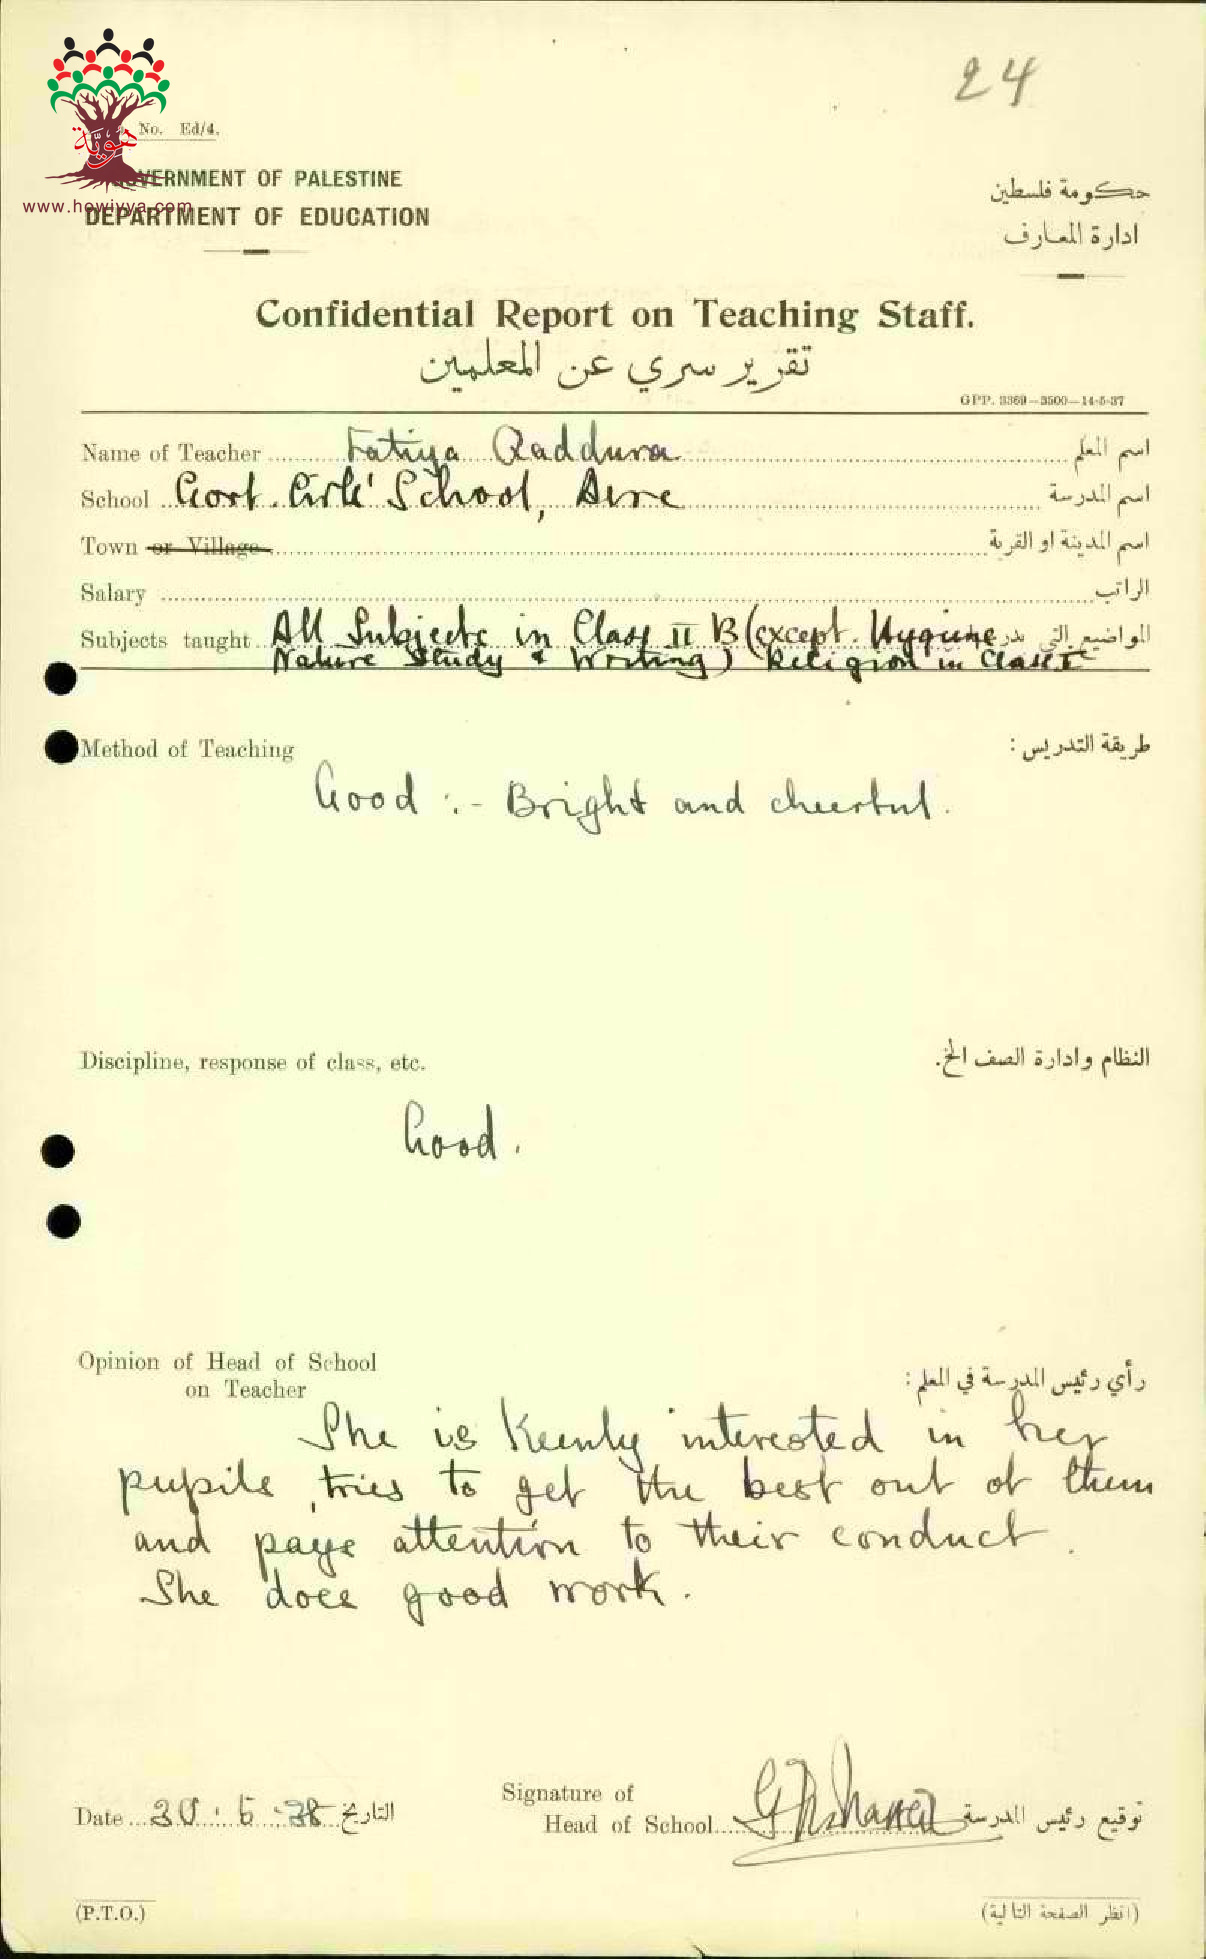 24
هوية
No. Ed/4.
GOVERNMENT OF PALESTINE
www.howiyya.com
DEPARTMENT OF EDUCATION
حكومة فلسطين
ادارة المعارف
Confidential Report on Teaching Staff.
تقرير سري عن المعلمين
GPP. 3369—3500—14-5-37
Name of Teacher Fatiya Qaddura اسم المعلم
School Govt. Girls' School, Acre اسم المدرسة
Town or Village اسم المدينة او القرية
Salary الراتب
Subjects taught All Subjects in Class II B (except Hygiene المواضيع التي
Nature Study & Writing) Religion in Class I
Method of Teaching طريقة التدريس :
Good :- Bright and cheerful.
Discipline, response of class, etc. النظام وادارة الصف الخ.
Good.
Opinion of Head of School
on Teacher رأي رئيس المدرسة في المعلم :
She is keenly interested in her
pupils, tries to get the best out of them
and pays attention to their conduct.
She does good work.
Signature of
Date 30. 5. 38 التاريخ Head of School توقيع رئيس المدرسة
(P.T.O.) (انظر الصفحة التالية)